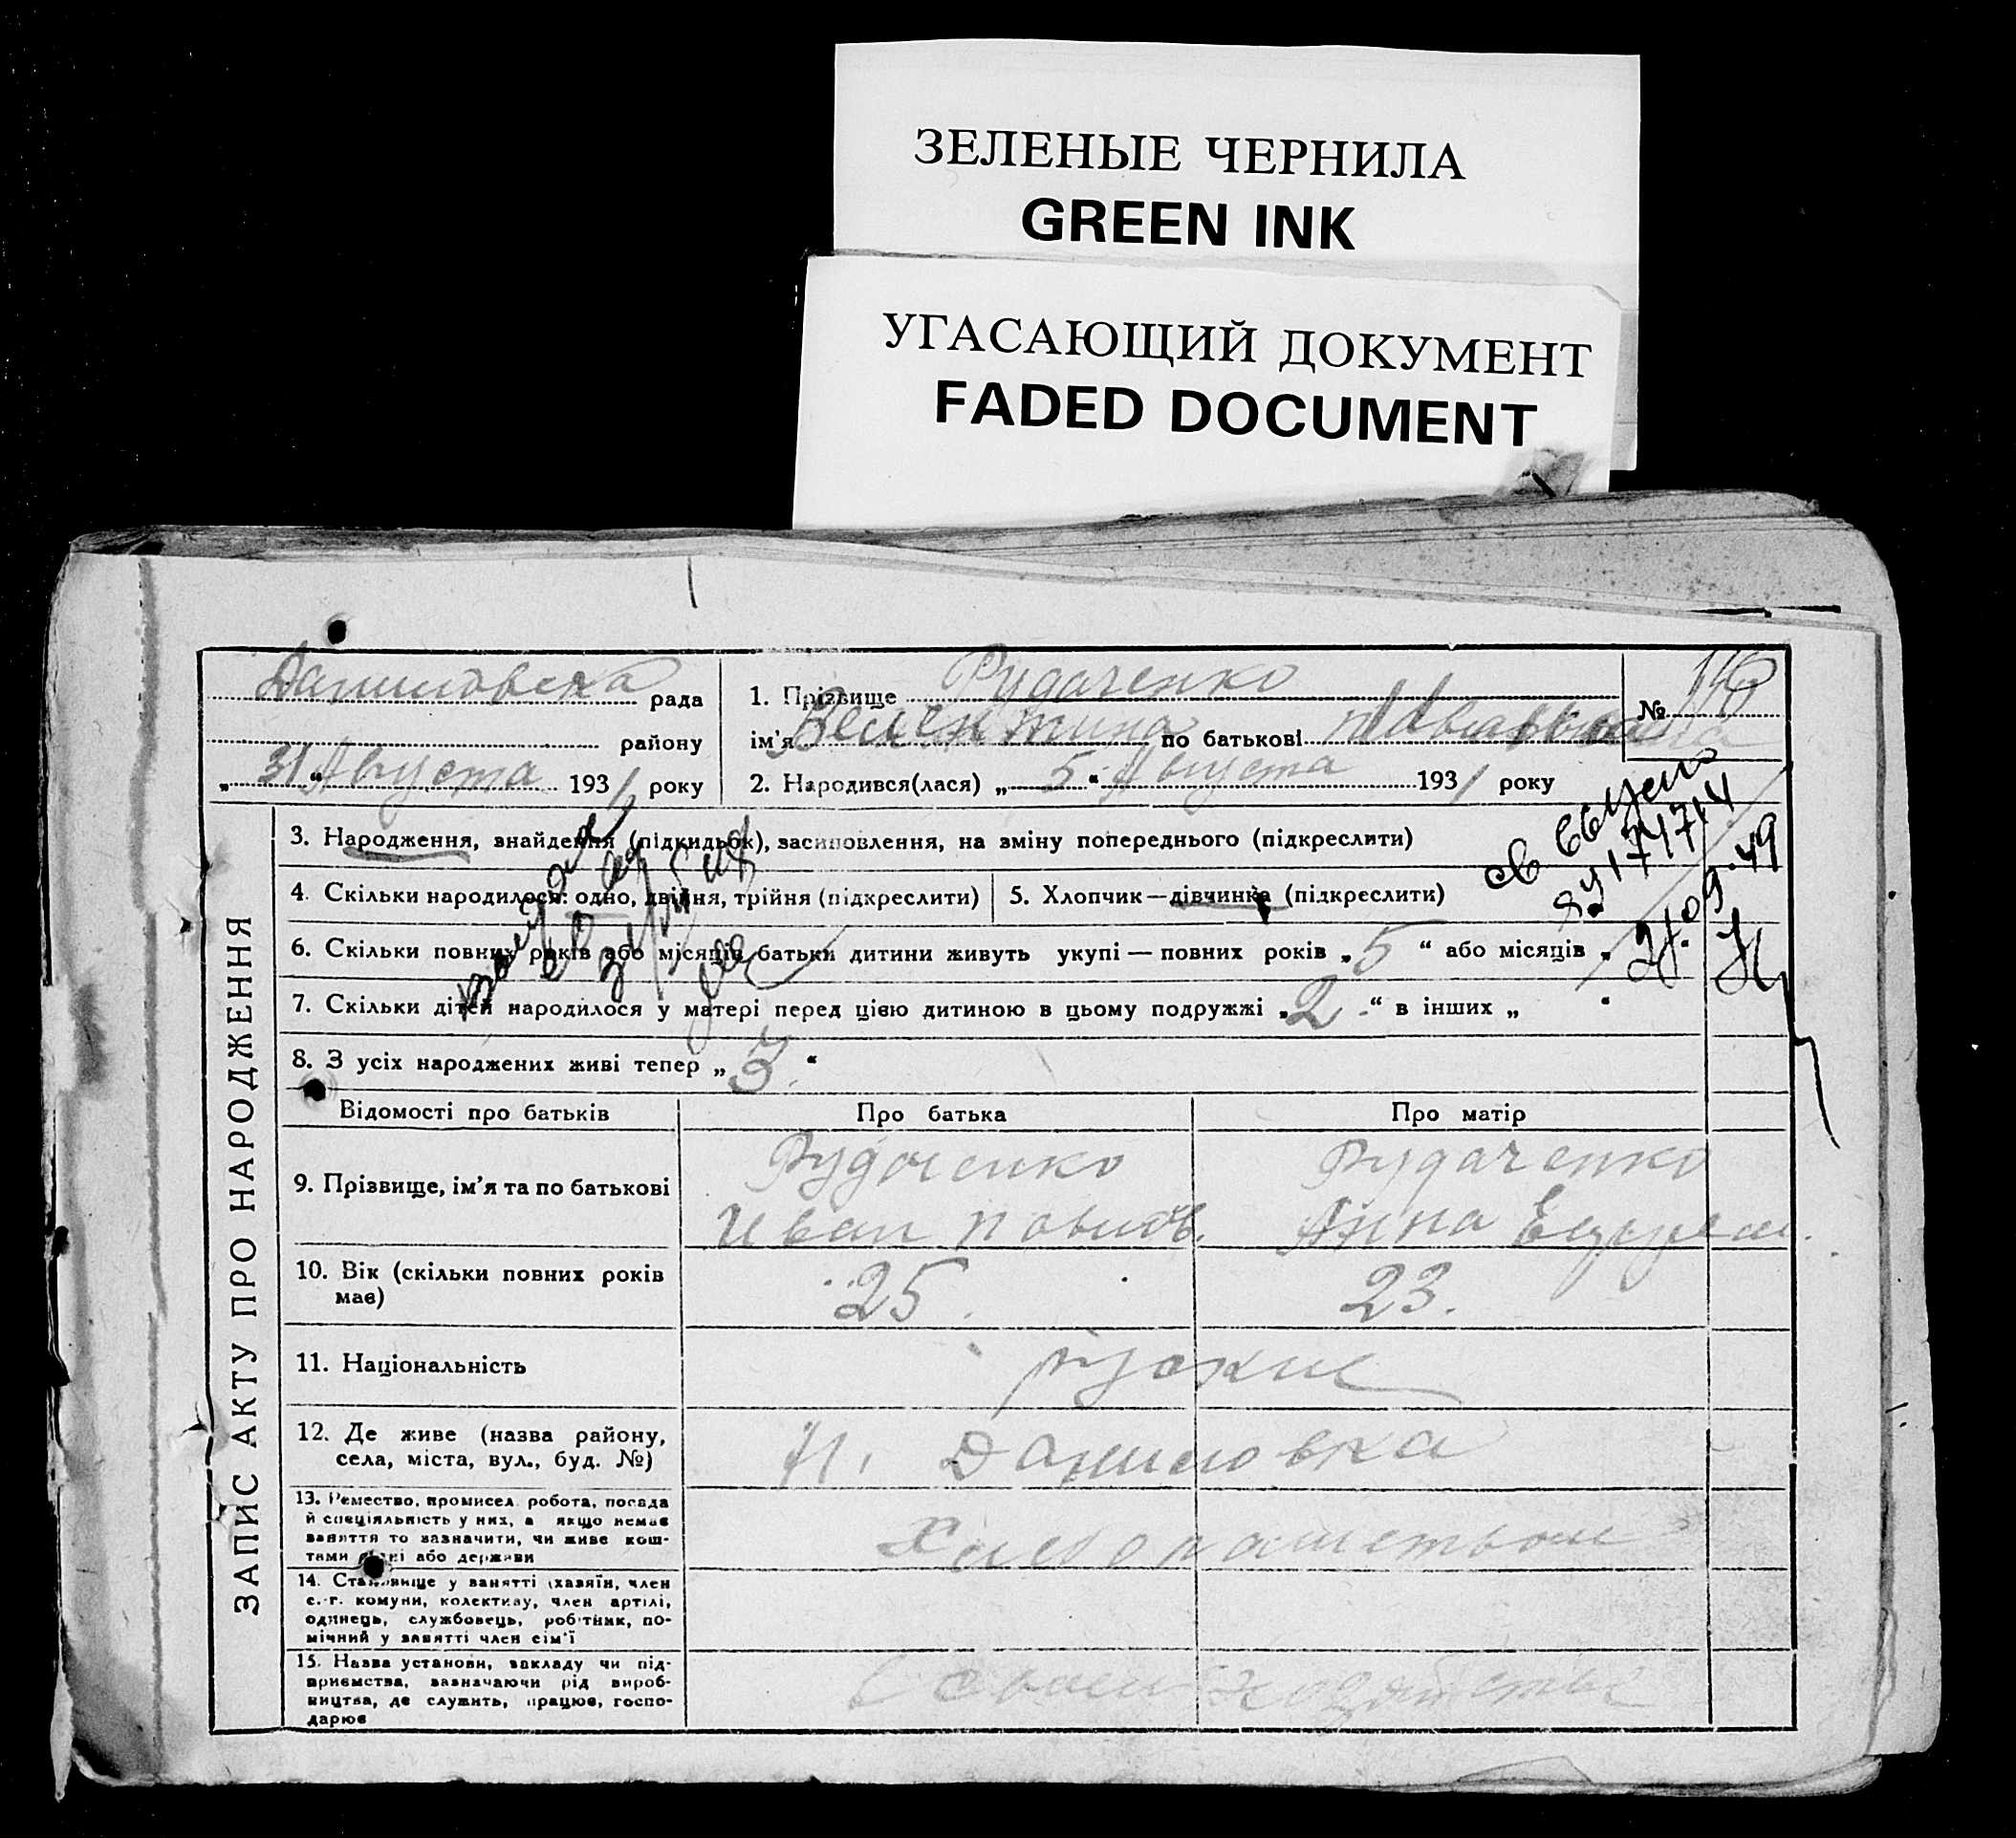 ЗЕЛЕНЫЕ ЧЕРНИЛА
GREEN INK
УГАСАЮЩИЙ ДОКУМЕНТ
FADED DOCUMENT
ЗАПИС АКТУ ПРО НАРОДЖЕННЯ
Даниловска рада
району
„31“ Августа 1931 року
1. Прізвище Рудаченко
ім'я Велентина по батькові
2. Народився(лася) „5“ Августа 1931 року
№ 116
3. Народження, знайдення (підкидьок), засиновлення, на зміну попереднього (підкреслити)
4. Скільки народилося: одно, двійня, трійня (підкреслити)
5. Хлопчик — дівчинка (підкреслити)
6. Скільки повних років або місяців батьки дитини живуть укупі — повних років „5“ або місяців „
7. Скільки дітей народилося у матері перед цією дитиною в цьому подружжі „2.“ в інших „ “
8. З усіх народжених живі тепер „3.“
Відомості про батьків
Про батька
Про матір
9. Прізвище, ім'я та по батькові
Рудаченко
Иван
Рудаченко
Анна
10. Вік (скільки повних років
має)
25.
23.
11. Національність
руские
12. Де живе (назва району,
села, міста, вул., буд. №)
Н. Даниловка
13. Ремество, промисел, робота, посада
й спеціяльність у них, а якщо немає
заняття то зазначити, чи живе кош-
тами рідні або держави
Хлебопашеством
14. Становище у занятті (хазяїн, член
с.-г. комуни, колективу, член артілі,
одинець, службовець, робітник, по-
мічний у занятті член сім'ї
15. Назва установи, закладу чи під-
приємства, зазначаючи рід вироб-
ництва, де служить, працює, госпо-
дарює